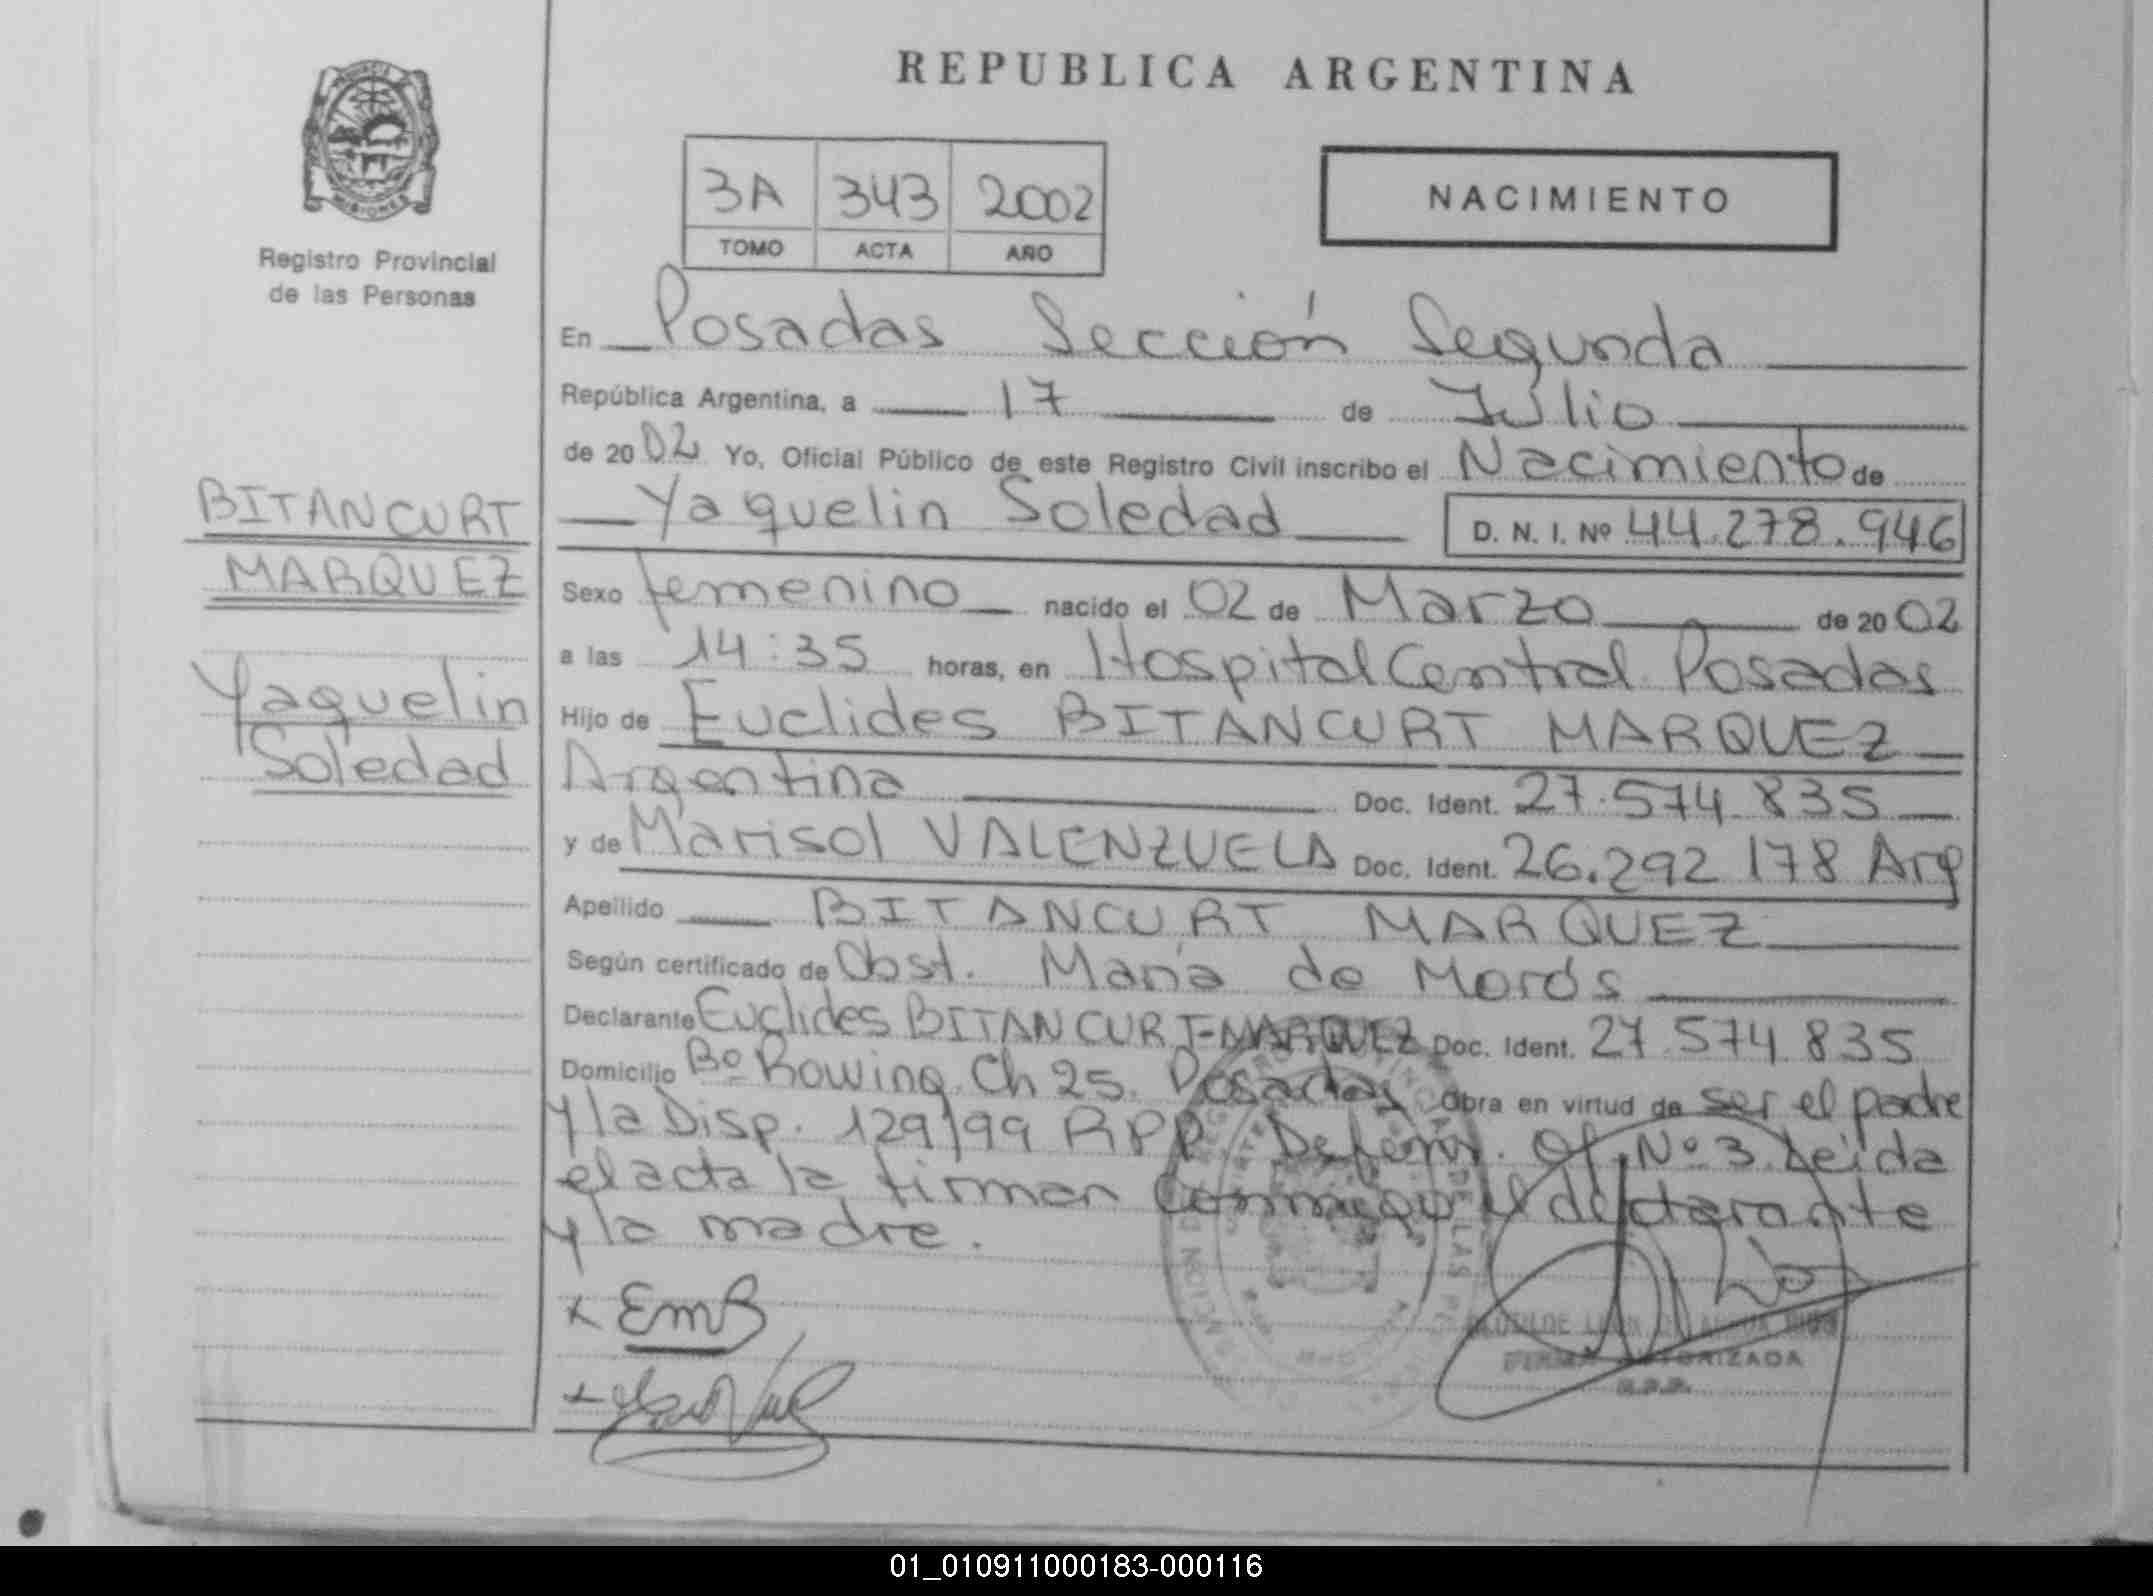 REPUBLICA ARGENTINA
PROVINCIA DE
MISIONES
Registro Provincial
de las Personas
3A 343 2002
TOMO ACTA AÑO
NACIMIENTO
En Posadas Sección Segunda
República Argentina, a 17 de Julio
de 2002 Yo, Oficial Público de este Registro Civil inscribo el Nacimiento de
Yaquelin Soledad D. N. I. Nº 44.278.946
BITANCURT
MARQUEZ
Yaquelin
Soledad
Sexo femenino nacido el 02 de Marzo de 2002
a las 14:35 horas, en Hospital Central Posadas
Hijo de Euclides BITANCURT MARQUEZ
Argentina Doc. Ident. 27.574.835
y de Marisol VALENZUELA Doc. Ident. 26.292.178 Arg
Apellido BITANCURT MARQUEZ
Según certificado de Obst. María de Morós
Declarante Euclides BITANCURT-MARQUEZ Doc. Ident. 27.574.835
Domicilio Bº Rowing Ch 25. Posadas Obra en virtud de ser el padre
y la Disp. 129/99 RPP. Of. Nº 3. Leída
el acta la firman conmigo el declarante
y la madre.
x EmB
x
FIRMA AUTORIZADA
R.P.P.
01_010911000183-000116